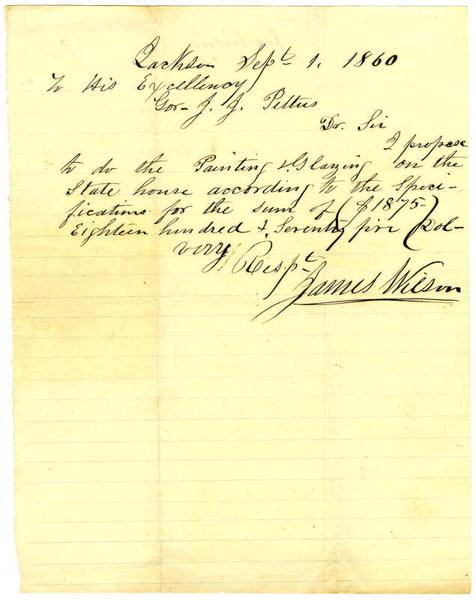 Jackson Sept 1. 1860
To His Excellency
Gov. J. J. Pettus
Dr. Sir
I propose
to do the Painting & Glazing on the
State house according to the Speci-
fications for the sum of ($1875)
Eighteen hundred & Seventy five Dol-
very Respt
James Wilson